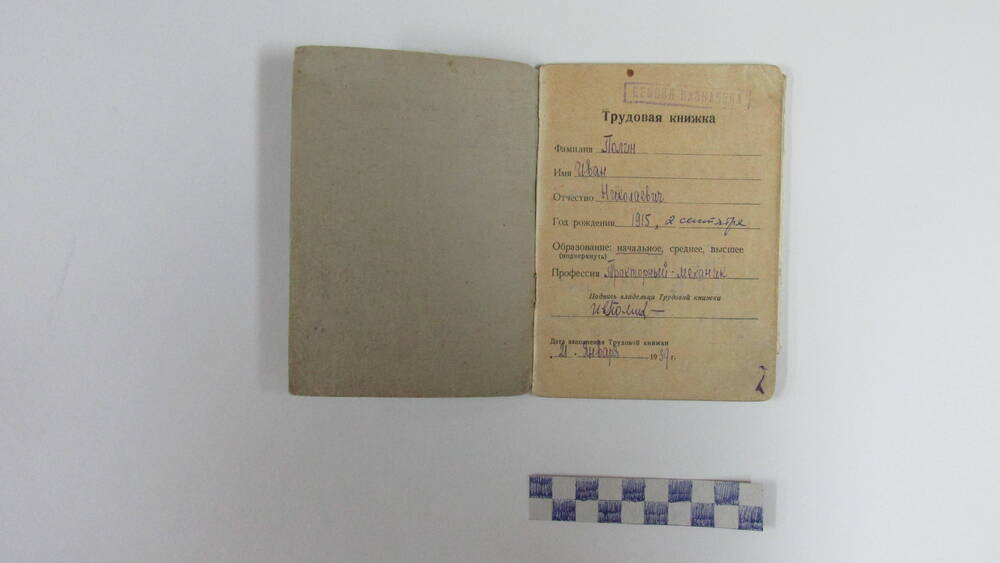 Трудовая книжка
Фамилия Полин
Имя Иван
Отчество Николаевич
Год рождения 1915, 2 сентября
Образование: начальное, среднее, высшее
(подчеркнуть)
Профессия Тракторный-механик
Подпись владельца Трудовой книжки
Дата заполнения Трудовой книжки
21. января 1939 г.